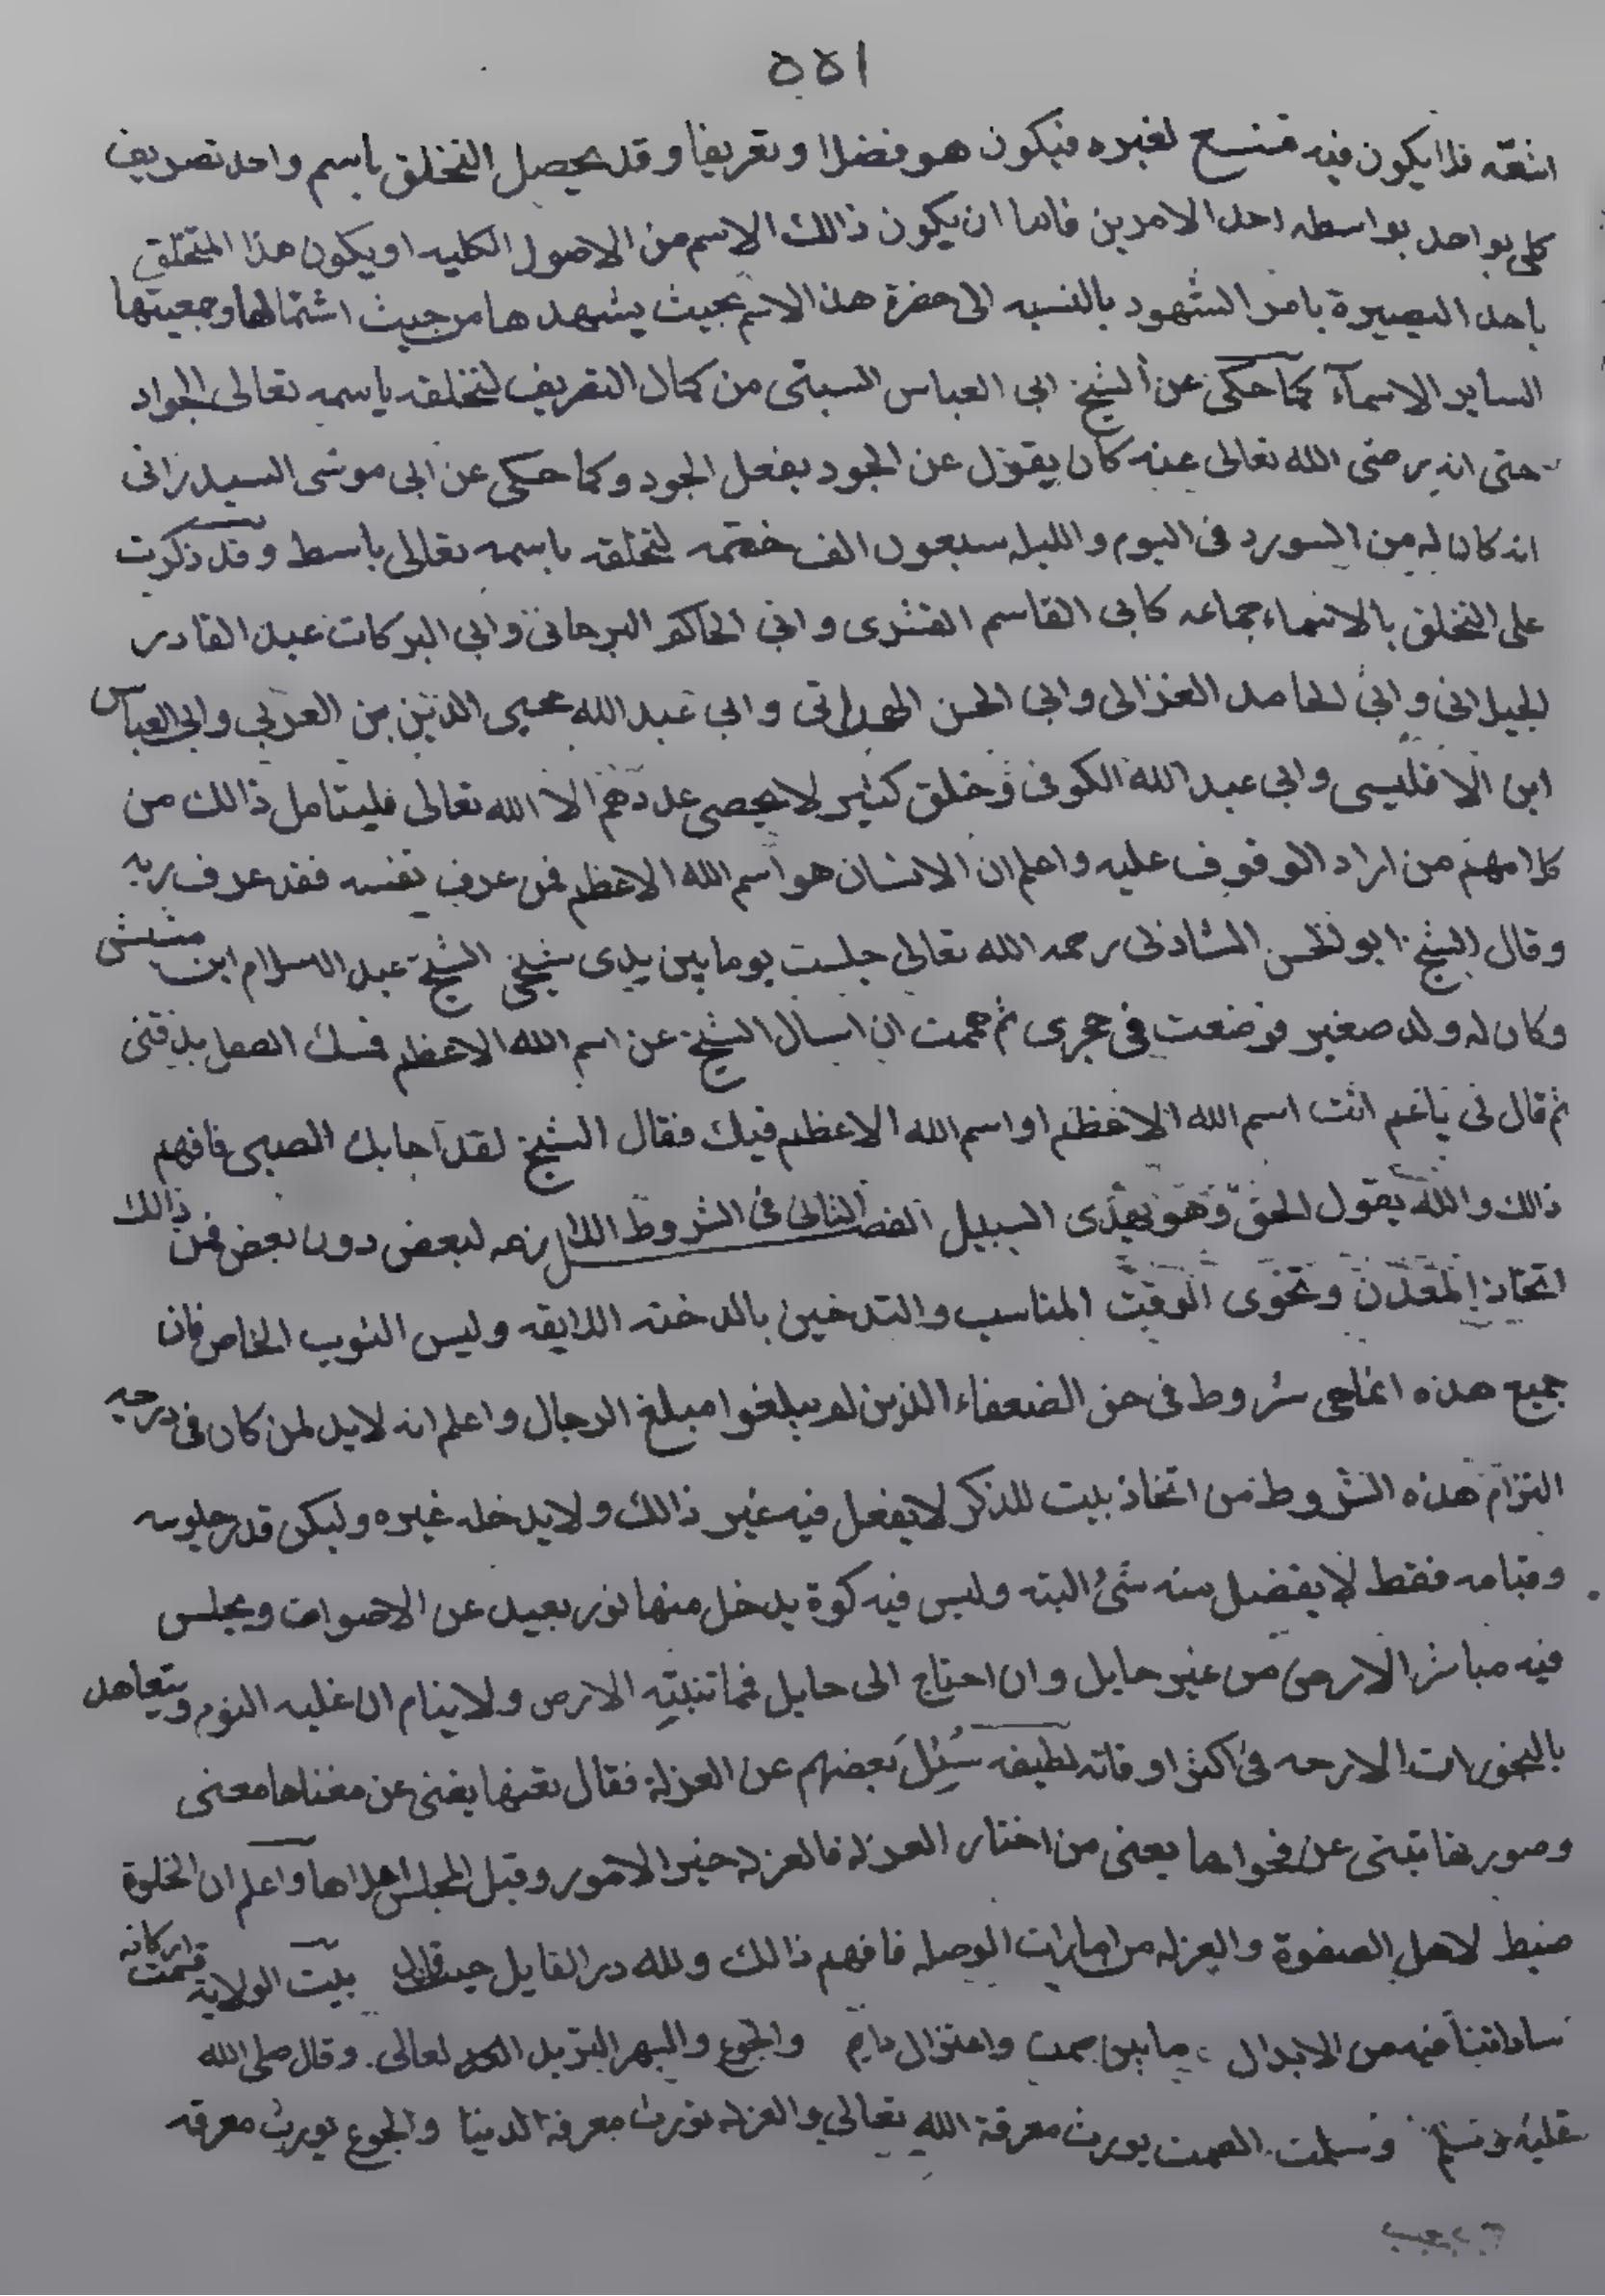 ١٥٥
فلا يكون فيه متسع لغيره فيكون هو فضلا وتعريفا وقد يحصل التخلق باسم واحد تصريف
كلى بواحد بواسطه احد الامرين فاما ان يكون ذالك الاسم من الاصول الكليه او يكون هذا المتخلق
باحد البصيرة بامر الشهود بالنسبه الى حضرة هذا الاسم بحيث يشهدها من حيث اشتمالها وجمعيتها
الساير الاسمآء كما حكى عن الشيخ ابى العباس السبتى من كمال التعريف لتخلقه باسمه تعالى الجواد
حتى انه رضى الله تعالى عنه كان يقول عن الجود بفعل الجود وكما حكى عن ابى موسى السيدرانى
انه كان له من الورد فى اليوم والليله سبعون الف ختمه لتخلقه باسمه تعالى باسط وقد ذكرت
على التخلق بالاسماء جماعه كابى القاسم القشرى وابى الحاكم البرحانى وابى البركات عبد القادر
الجيلانى وابى الحامد الغزالى وابى الحسن وابى عبد الله محيى الدين بن العربى وابى العباس
ابن الافليسى وابى عبد الله الكوفى وخلق كثير لا يحصى عددهم الا الله تعالى فليتامل ذالك من
كلامهم من اراد الوقوف عليه واعلم ان الانسان هو اسم الله الاعظم فمن عرف نفسه فقد عرف ربه
وقال الشيخ ابو الحسن الشاذلى رحمه الله تعالى جلست يوما بين يدى شيخى الشيخ عبد السلام ابن مشيش
وكان له ولد صغير فوضعت فى حجرى ثم هممت ان اسال الشيخ عن اسم الله الاعظم فمسك بذقنى
ثم قال لى يا عم انت اسم الله الاعظم او اسم الله الاعظم فيك فقال الشيخ لقد اجابك الصبى فافهم
ذالك والله يقول الحق وهو يهدى السبيل الفصل الثانى فى الشروط اللازمه لبعض دون بعض فمن ذالك
اتخاذ المعدن وتحرى الوقت المناسب والتدخين بالدخنه اللايقه وليس الثوب الخاص فان
جميع هذه انما هى شروط فى حق الضعفاء الذين لم يبلغوا مبلغ الرجال واعلم انه لابد لمن كان فى درجه
التزام هذه الشروط من اتخاذ بيت للذكر لا يفعل فيه غير ذالك ولا يدخله غيره وليكن قدر جلوسه
وقيامه فقط لا يفضل منه شئ البته وليس فيه كوة يدخل منها نور بعيد عن الاصوات ويجلس
فيه مباشر الارض من غير حايل وان احتاج الى حايل فمما تنبته الارض ولا ينام ان غلبه النوم ويتعاهد
بالبخورات الارحه فى اكثر اوقاته لطيفه سُئِلَ بعضهم عن العزلة فقال تعينها يغنى عن مغناها معنى
وصورتها تبنى عن فحواها يعنى من اختار العزلة فالعزله خير الامور وقبل المجلس واعلم ان الخلوة
ضبط لاهل الصفوة والعزله من امارات الوصله فافهم ذالك ولله در القايل حيث قال بيت الولاية قسمت اركانه
ساداتنا فيه من الابدال ما بين صمت واعتزال دايم والجوع والسهر وقال صلى الله
عليه وسلم الصمت يورث معرفة الله تعالى والعزله تورث معرفة الدنيا والجوع يورث معرفه